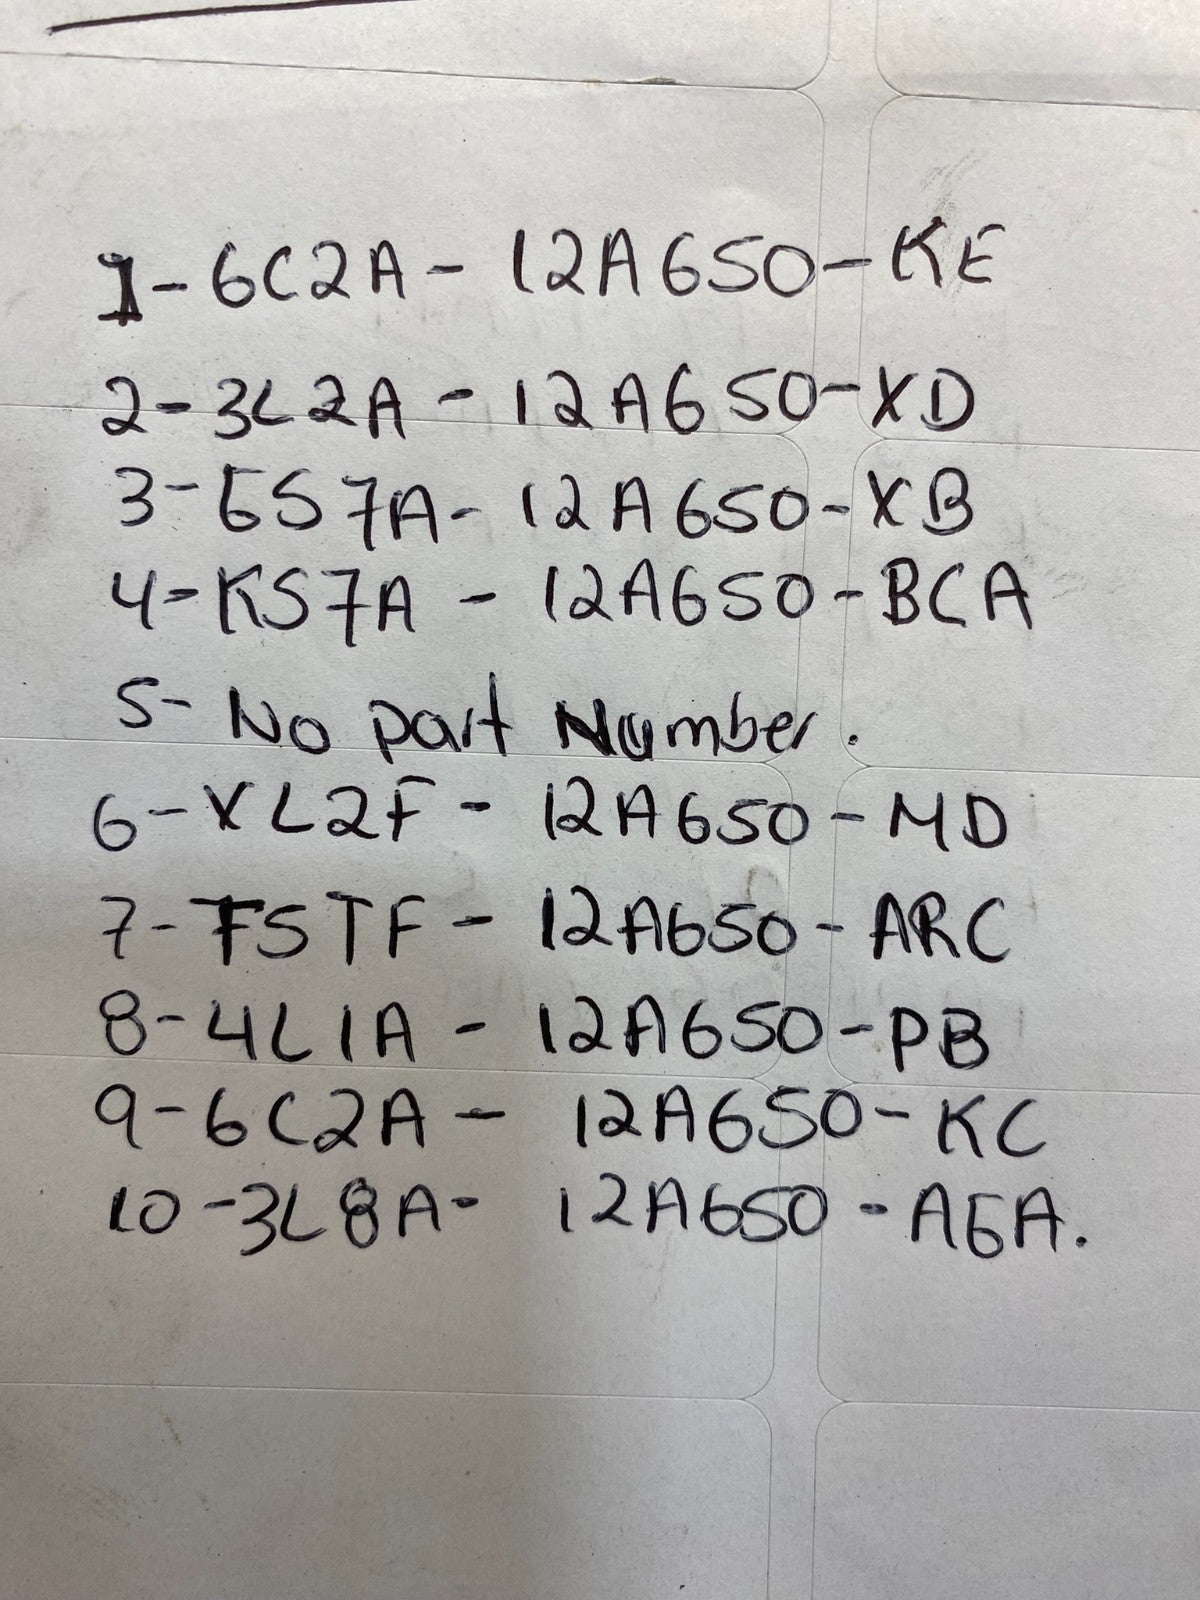 1- 6C2A - 12A650-KE
2- 3L2A - 12A650-XD
3- 6S7A- 12A650-XB
4- KS7A - 12A650-BCA
5- No part Number.
6- XL2F - 12A650-MD
7- FSTF - 12A650-ARC
8- 4L1A - 12A650-PB
9- 6C2A - 12A650-KC
10-3L8A- 12A650-AGA.